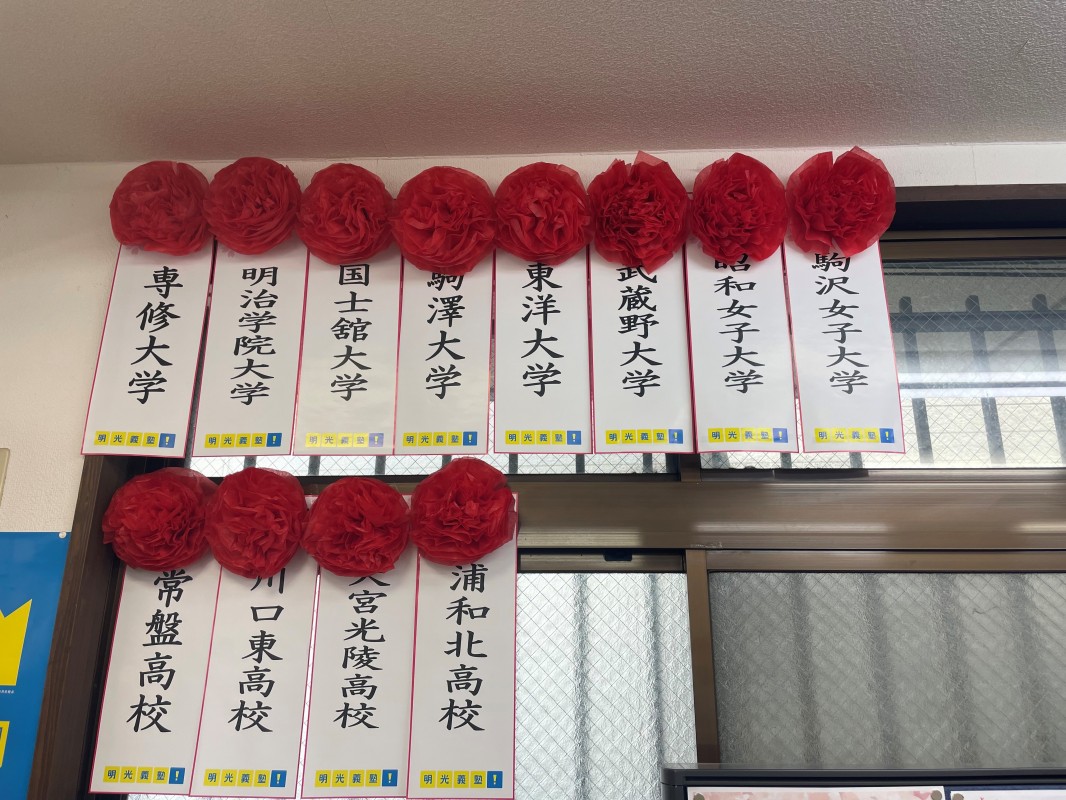 専修大学
明光義塾!
明治学院大学
明光義塾!
国士舘大学
明光義塾!
駒澤大学
明光義塾!
東洋大学
明光義塾!
武蔵野大学
明光義塾!
昭和女子大学
明光義塾!
駒沢女子大学
明光義塾!
常盤高校
明光義塾!
川口東高校
明光義塾!
大宮光陵高校
明光義塾!
浦和北高校
明光義塾!